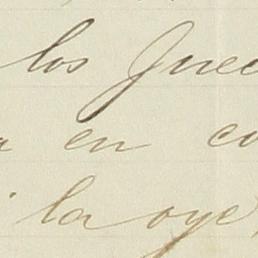 los Juec
a en co
la oye,